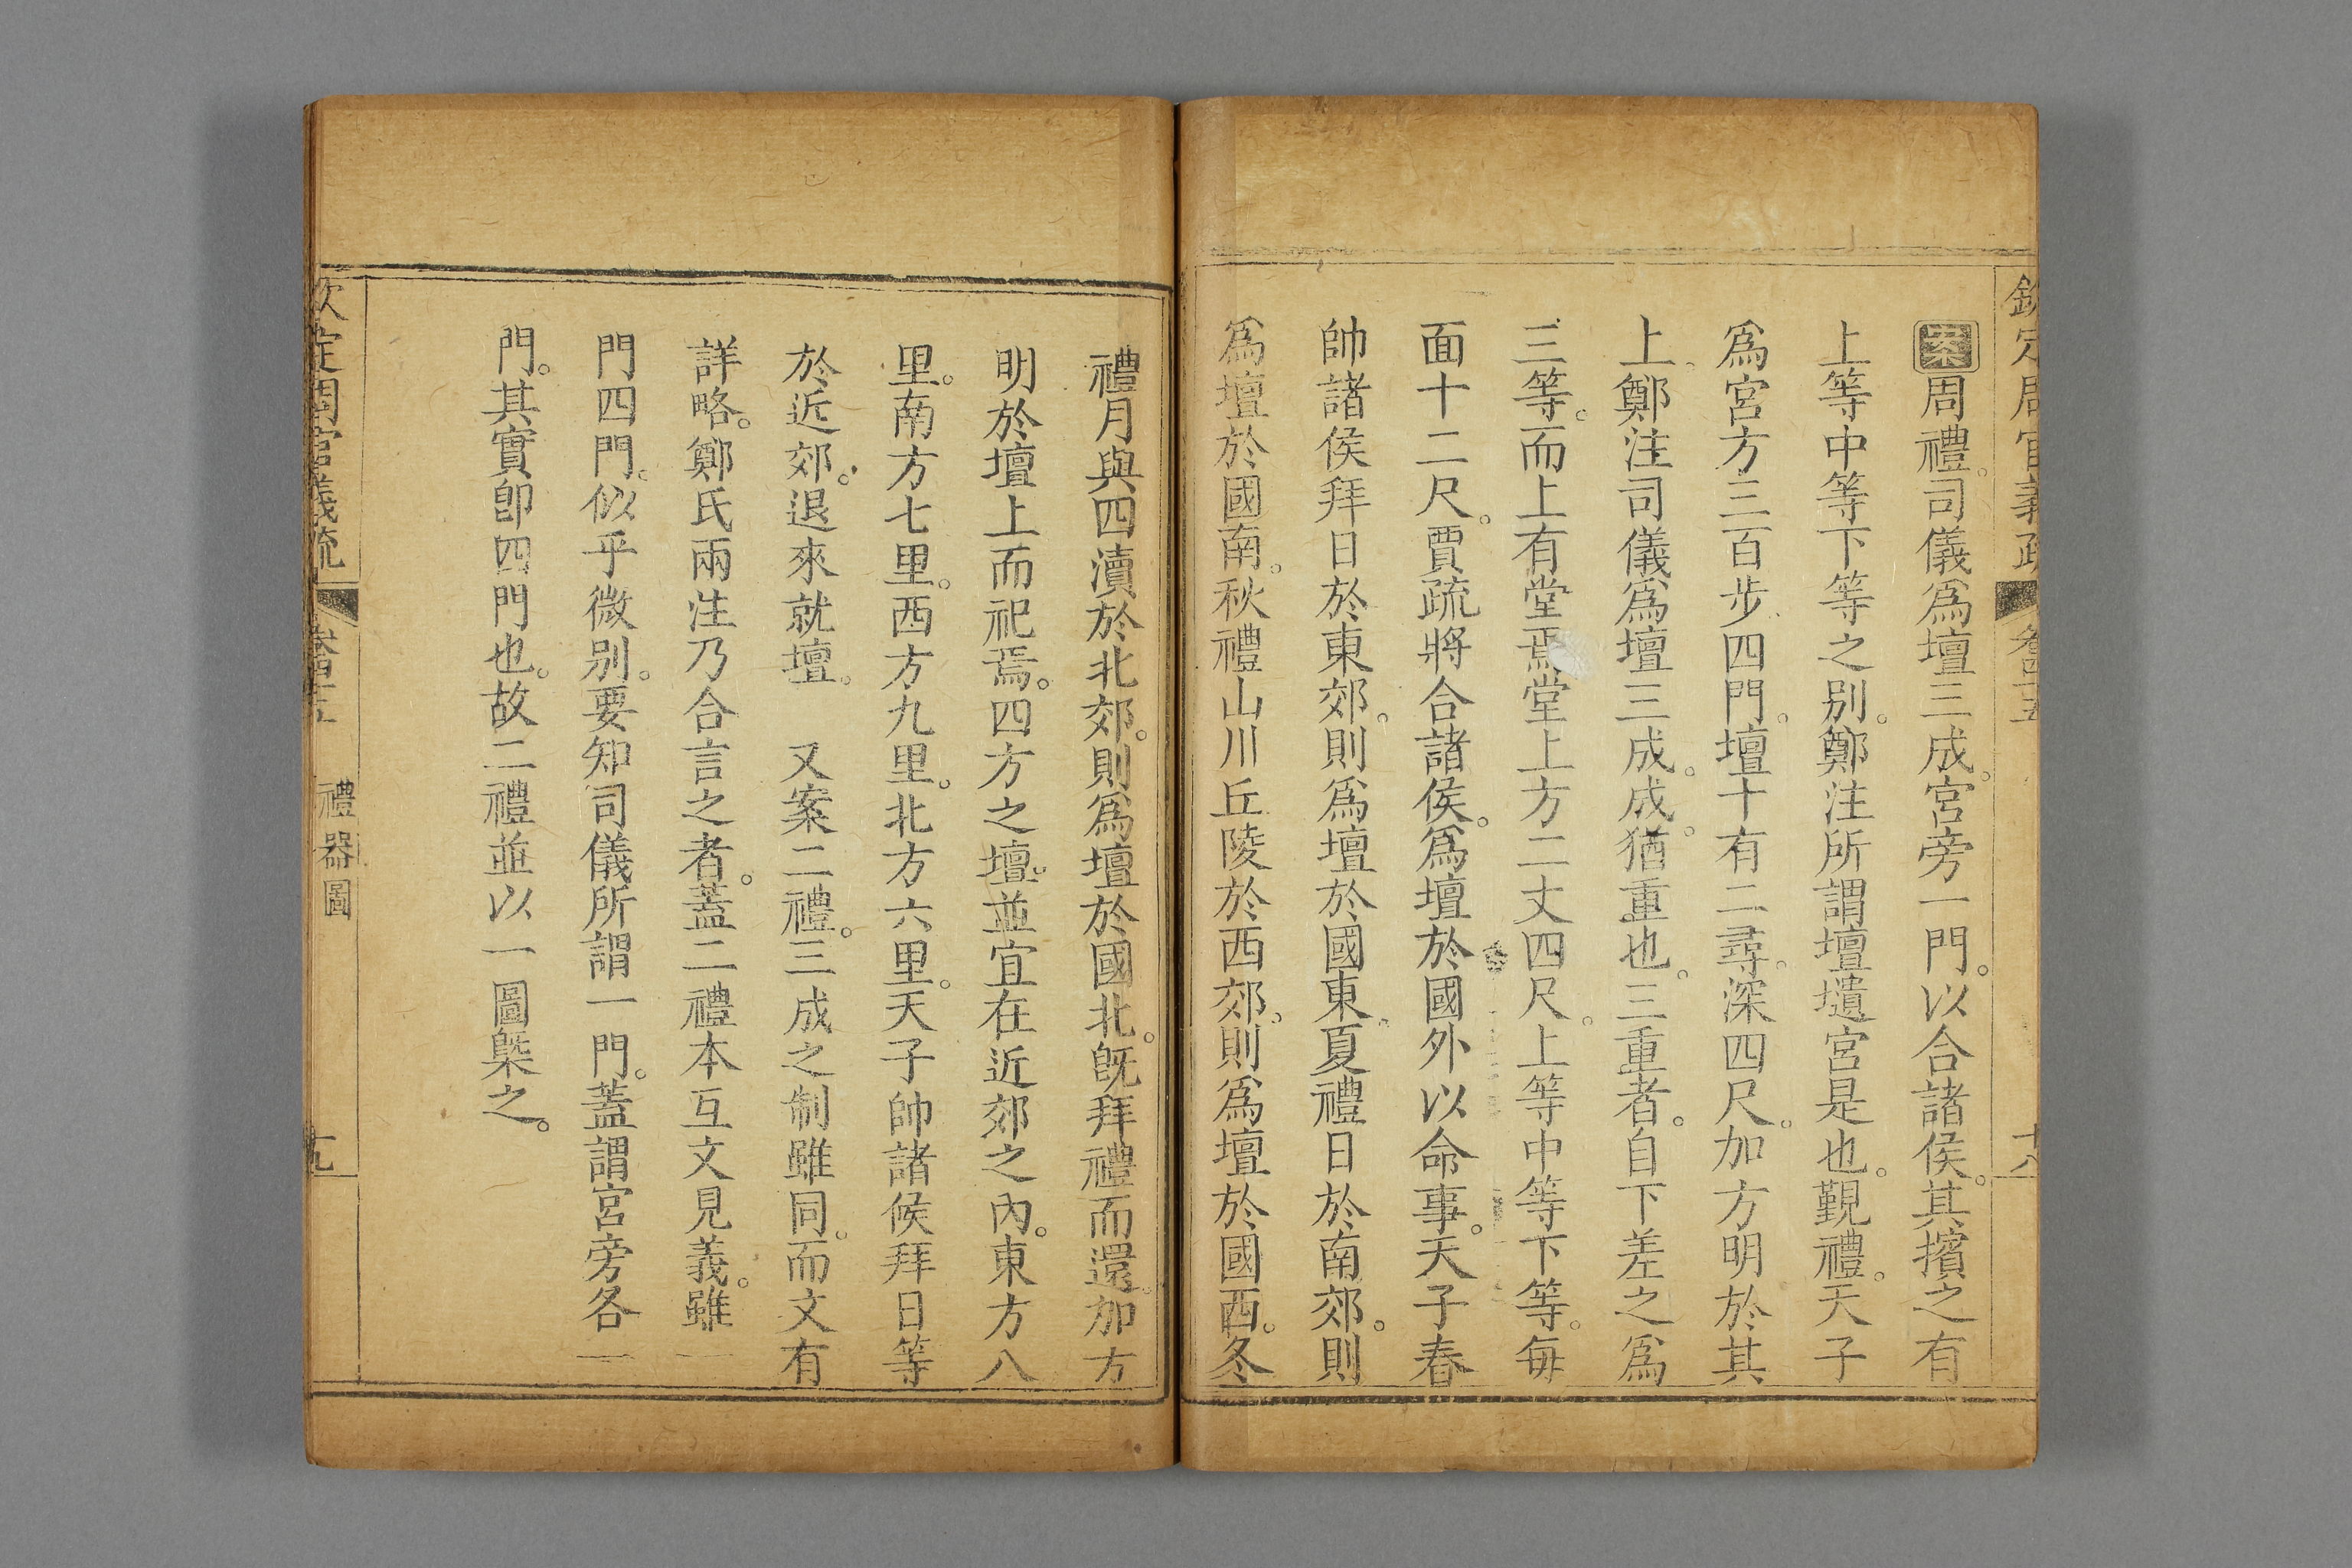 欽定周官義疏 卷四十五 十八
案周禮。司儀爲壇三成。宮旁一門。以合諸侯。其擯之有
上等中等下等之别。鄭注所謂壇壝宮是也。覲禮。天子
爲宮方三百步。四門。壇十有二尋。深四尺。加方明於其
上。鄭注司儀爲壇三成。成。猶重也。三重者。自下差之爲
三等。而上有堂焉。堂上方二丈四尺。上等中等下等。每
面十二尺。賈疏將合諸侯。爲壇於國外以命事。天子春
帥諸侯拜日於東郊。則爲壇於國東。夏禮日於南郊。則
爲壇於國南。秋禮山川丘陵於西郊。則爲壇於國西。冬
禮月與四瀆於北郊。則爲壇於國北。既拜禮而還。加方
明於壇上而祀焉。四方之壇。並宜在近郊之內。東方八
里。南方七里。西方九里。北方六里。天子帥諸候拜日等
於近郊。退來就壇。 又案二禮。三成之制雖同。而文有
詳略。鄭氏兩注乃合言之者。蓋二禮本互文見義。雖一
門四門。似乎微别。要知司儀所謂一門。蓋謂宮旁各一
門。其實卽四門也。故二禮並以一圖槩之。
欽定周官義疏 卷四十五 禮器圖 十九